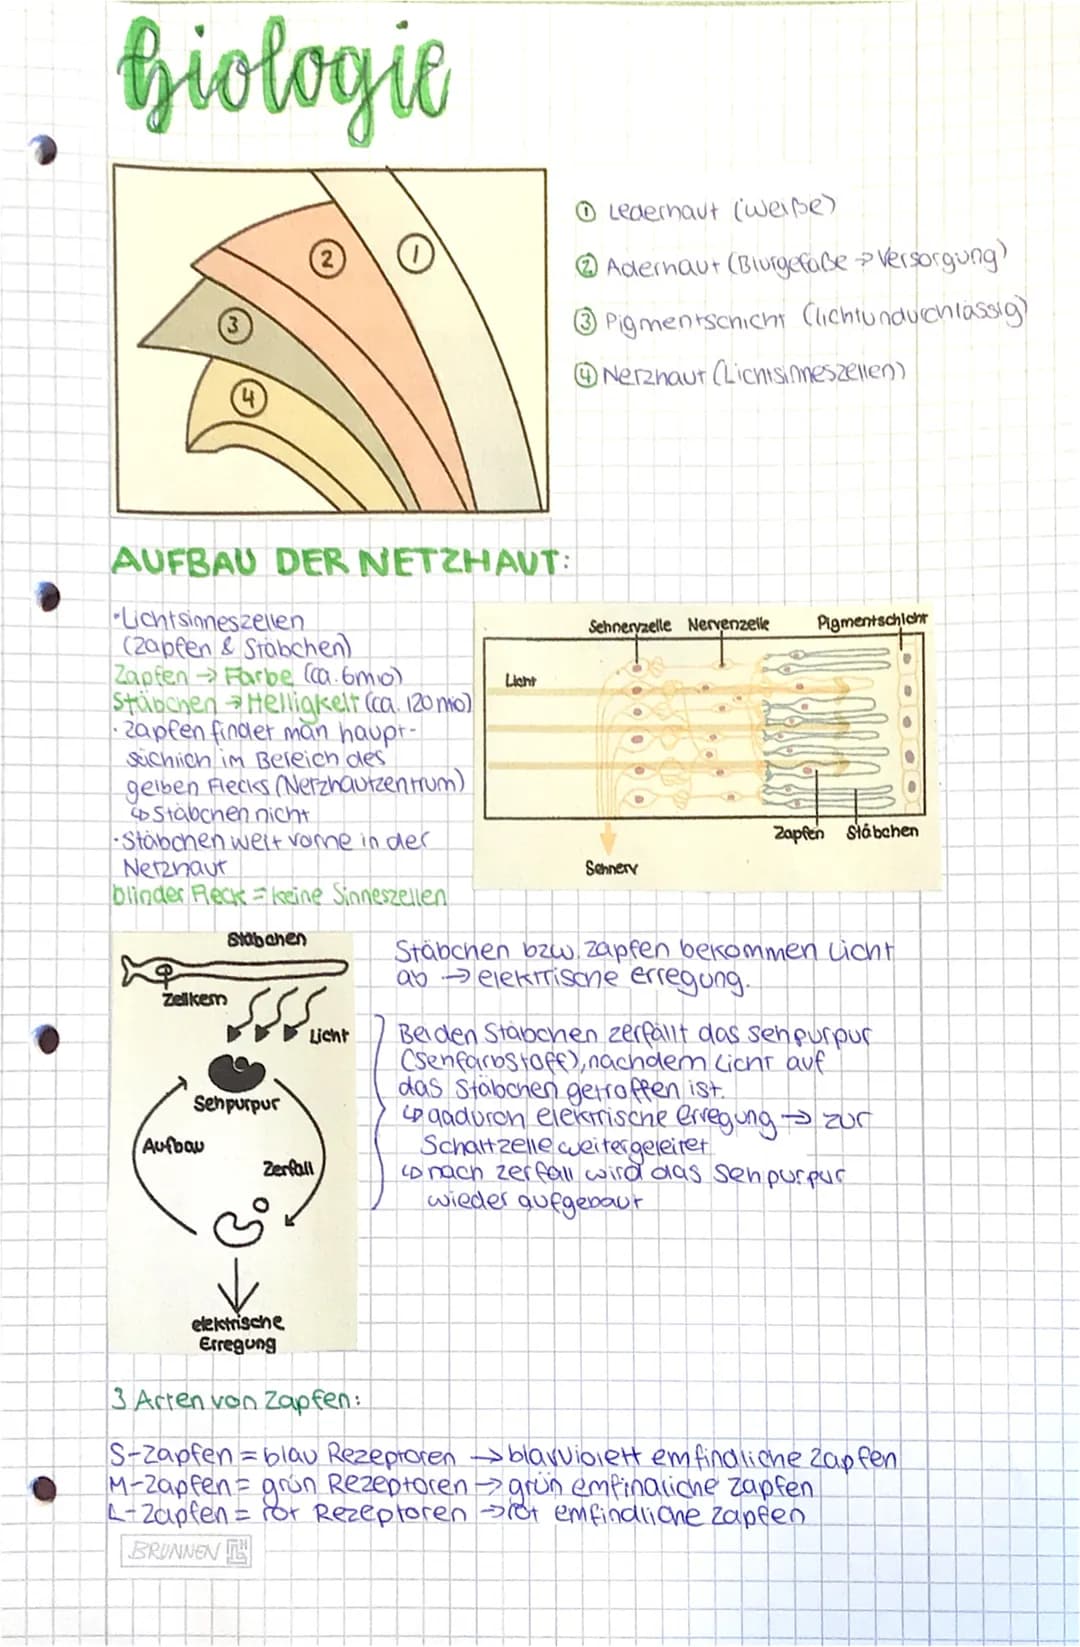 Biologie
2
1
3
4
① Lederhaut (weiße)
② Aderhaut (Blutgefäße → Versorgung)
③ Pigmentschicht (lichtunduchlässig)
④ Netzhaut (Lichtsinneszellen)
AUFBAU DER NETZHAUT:
·Lichtsinneszellen
(Zapfen & Stäbchen)
Zapfen → Farbe (ca. 6mio)
Stäbchen → Helligkeit (ca. 120 mio)
· Zapfen findet man haupt-
sächlich im Bereich des
gelben Flecks (Netzhautzentrum)
↳ Stäbchen nicht
· Stäbchen weit vorne in der
Netzhaut
blinder Fleck = keine Sinneszellen
Sehnervzelle Nervenzelle Pigmentschicht
Licht
Zapfen Stäbchen
Sehnerv
Stäbchen
Zellkern
Licht
Sehpurpur
Aufbau
Zerfall
elektrische
Erregung
Stäbchen bzw. Zapfen bekommen Licht
ab → elektrische Erregung.
Bei den Stäbchen zerfällt das Sehpurpur
(Sehfarbstoff), nachdem Licht auf
das Stäbchen getroffen ist.
↳ dadurch elektrische Erregung → zur
Schaltzelle weitergeleitet
↳ nach Zerfall wird das Sehpurpur
wieder aufgebaut
3 Arten von Zapfen:
S-Zapfen = blau Rezeptoren → blauviolett emfindliche Zapfen
M-Zapfen = grün Rezeptoren → grün emfindliche Zapfen
L-Zapfen = rot Rezeptoren → rot emfindliche Zapfen
BRUNNEN